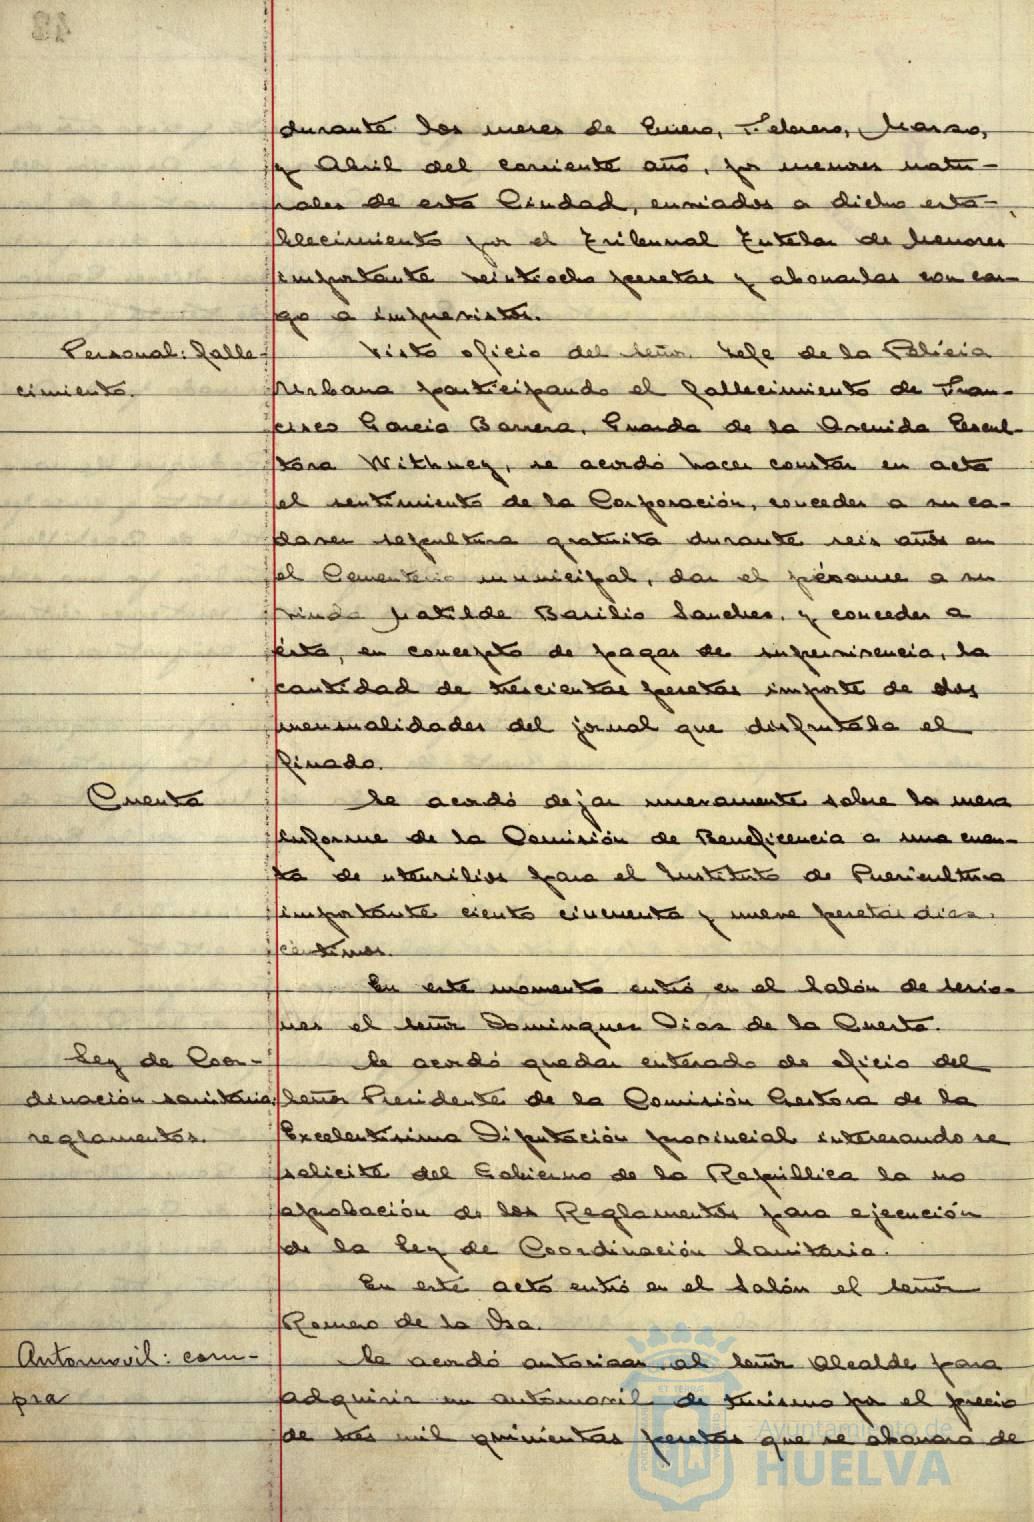 durante los meses de Enero, Febrero, Marzo,
y Abril del corriente año, por menores natu-
rales de esta Ciudad, enviados a dicho esta-
blecimiento por el Tribunal Tutelar de Menores
importante veintiocho pesetas y abonarlas con car-
go a imprevistos.
Personal: falle-
cimiento.
Visto oficio del señor Jefe de la Policia
Urbana participando el fallecimiento de Fran-
cisco Garcia Barrera, Guarda de la Avenida Escul-
tora Withney, se acordó hacer constar en acta
el sentimiento de la Corporación, conceder a su ca-
daver sepultura gratuita durante seis años en
el Cementerio municipal, dar el pésame a su
viuda Matilde Basilio Sanchez, y conceder a
ésta, en concepto de pagas de supervivencia, la
cantidad de trescientas pesetas importe de dos
mensualidades del jornal que disfrutaba el
finado.
Cuenta
Se acordó dejar nuevamente sobre la mesa
informe de la Comisión de Beneficencia a una cuen-
ta de utensilios para el Instituto de Puericultura
importante ciento cincuenta y nueve pesetas diez
céntimos.
En este momento entró en el Salón de sesio-
nes el señor Dominguez Diaz de la Cuesta.
Ley de Coor-
dinación sanitaria
reglamentos.
Se acordó quedar enterado de oficio del
señor Presidente de la Comisión Gestora de la
Excelentisima Diputación provincial interesando se
solicite del Gobierno de la República la no
aprobación de los Reglamentos para ejecución
de la Ley de Coordinación Sanitaria.
En este acto entró en el Salón el señor
Romero de la Osa.
Automovil: com-
pra
Se acordó autorizar al señor Alcalde para
adquirir un automovil de turismo por el precio
de tres mil quinientas pesetas que se abonará de
Ayuntamiento de
HUELVA